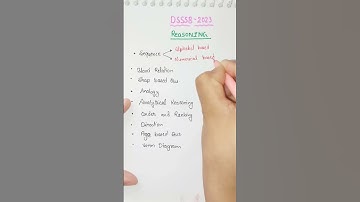 DSSSB-2023
REASONING
• Sequence < Alphabet based
Numerical based
• Blood Relation
• Shap based Que
• Analogy
• Analytical Reasoning
• Order and Ranking
• Direction
• Age based Que
• Venn Diagram